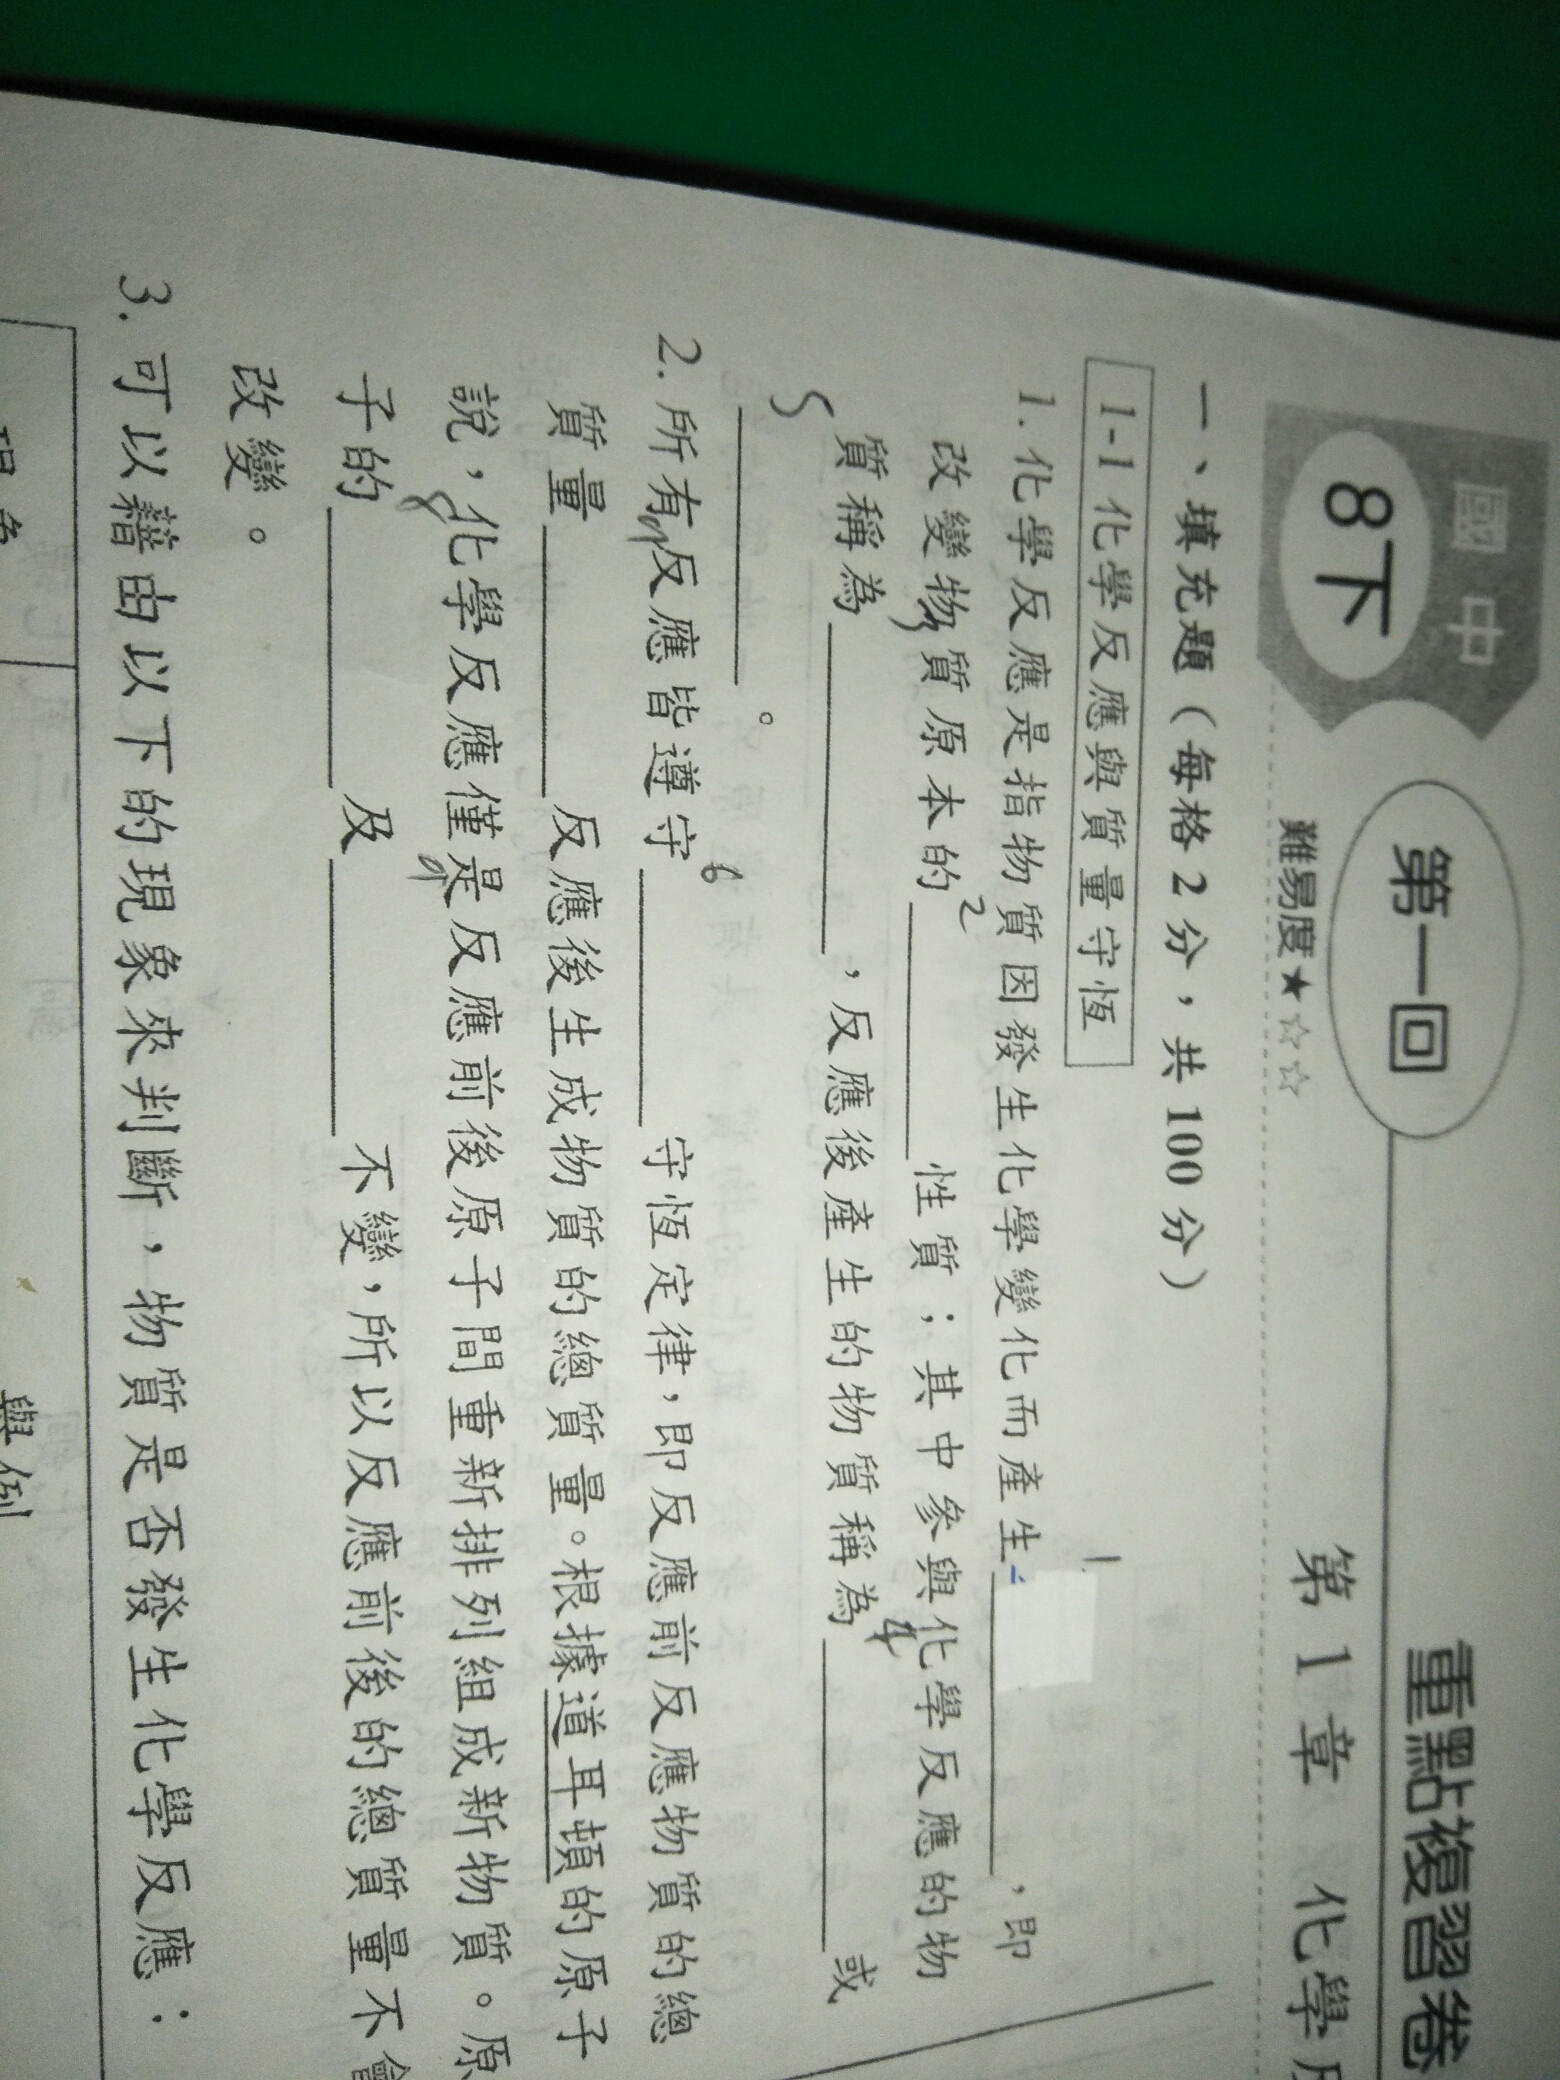 重點複習卷
國中
8下
第一回
第1章 化學
難易度★☆☆
一、填充題（每格2分，共100分）
1-1 化學反應與質量守恆
1
1. 化學反應是指物質因發生化學變化而產生＿＿＿，即
2
改變物質原本的＿＿＿性質；其中參與化學反應的物
3 4
質稱為＿＿＿，反應後產生的物質稱為＿＿＿或
5
＿＿＿。
6
2. 所有反應皆遵守＿＿＿守恆定律，即反應前反應物質的總
質量＿＿＿反應後生成物質的總質量。根據道耳頓的原子
說，化學反應僅是反應前後原子間重新排列組成新物質。原
8
子的＿＿＿及＿＿＿不變，所以反應前後的總質量不會
改變。
3. 可以藉由以下的現象來判斷，物質是否發生化學反應：
現象 舉例